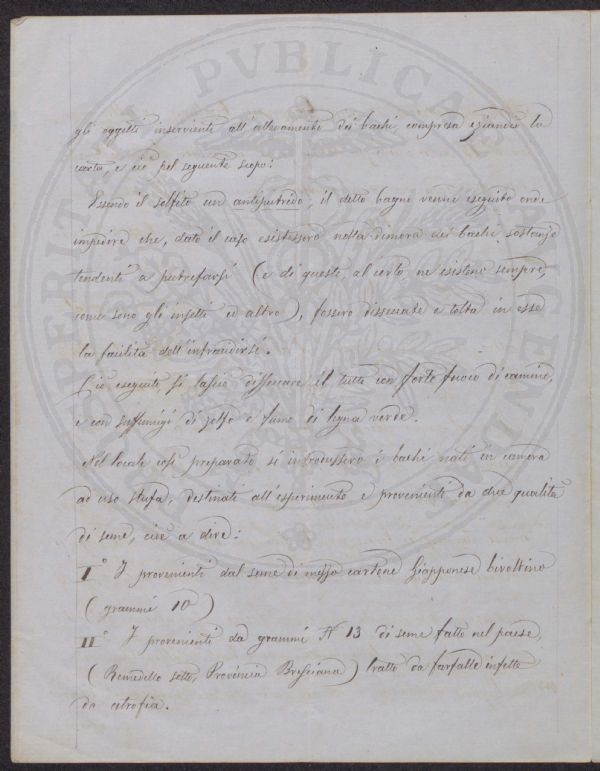 gli oggetti inservienti all'allevamento dei bachi, compresa eziandio la
carta, e ciò pel seguente scopo:
Essendo il solfito un antiputrido, il detto bagno venne eseguito onde
impedire che, dato il caso esistessero nella dimora dei bachi, sostanze
tendenti a putrefarsi (e di queste, al certo, ne esistono sempre,
come sono gli insetti ed altro), fossero disseccate e tolta in esse
la facilità dell'infracidirsi.
Ciò eseguito si lasciò disseccare il tutto con forte fuoco di camino,
e con suffumigi di zolfo e fumo di legna verde.
Nel locale così preparato si introdussero i bachi nati in camera
ad uso stufa, destinati all'esperimento e provenienti da due qualità
di seme, cioè a dire:
I° I provenienti dal seme di mezzo cartone Giapponese bivoltino
(grammi 10)
II° I provenienti da grammi N 13 di seme fatto nel paese,
(Remedello sotto, Provincia Bresciana) tratto da farfalle infette
da atrofia.
PVBLICA